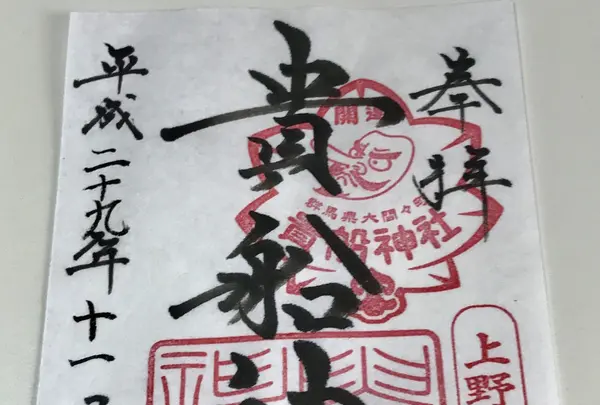 奉拝
開運
群馬県大間々町
貴船神社
貴船神
上野
平成二十九年十一月